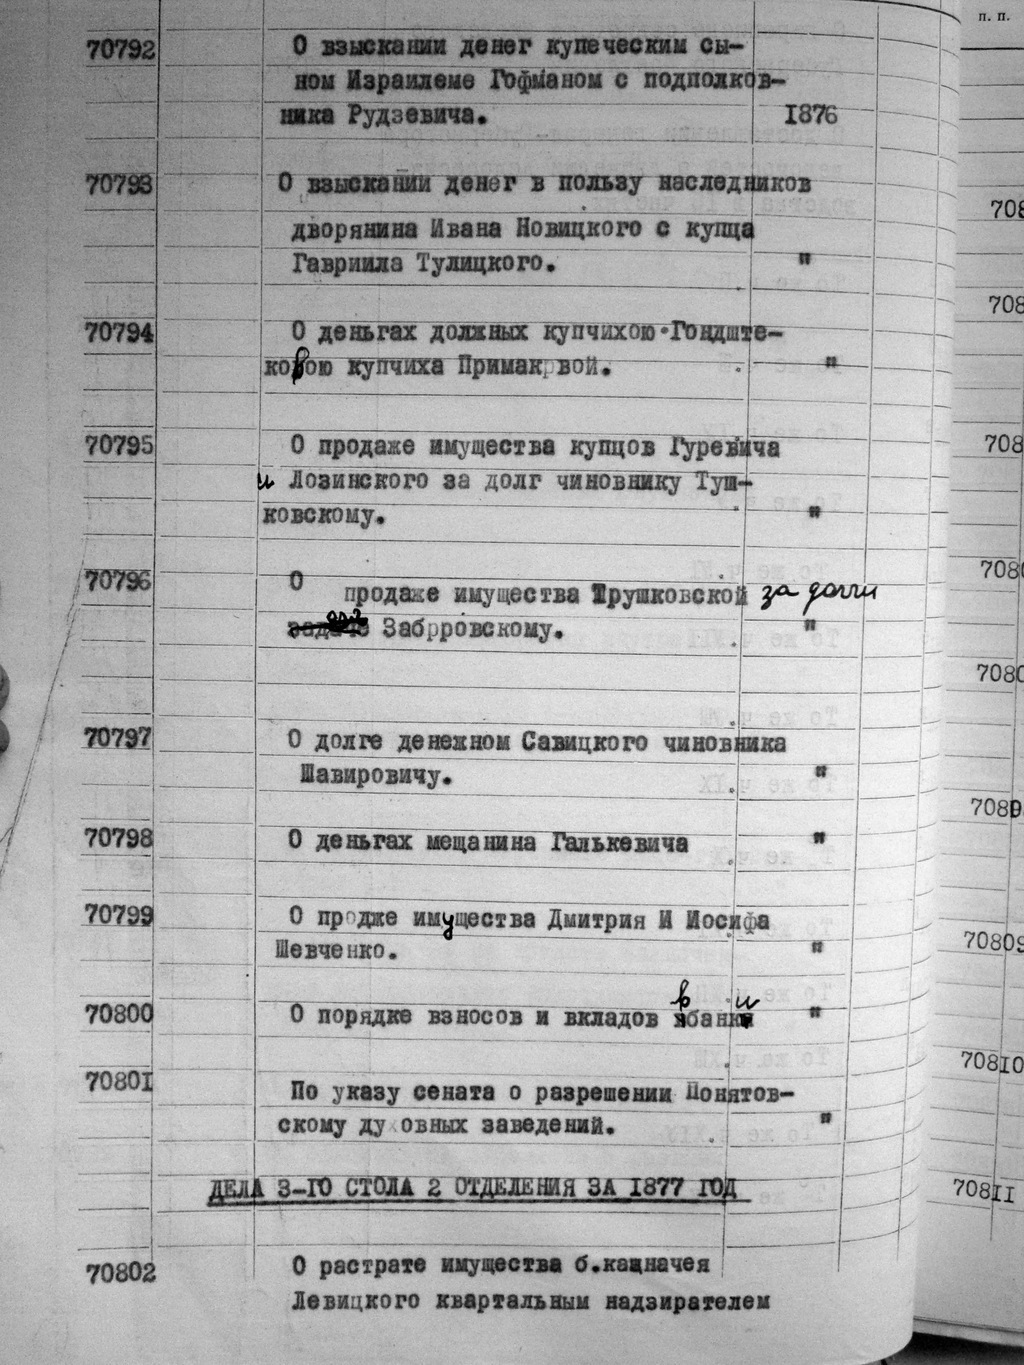 п. п.
70792 О взыскании денег купеческим сы-
ном Израилеме Гофманом с подполков-
ника Рудзевича. 1876
70793 О взыскании денег в пользу наследников
дворянина Ивана Новицкого с купца
Гавриила Тулицкого. "
70794 О деньгах должных купчихою Гондште-
ковою купчиха Примакрвой. "
70795 О продаже имущества купцов Гуревича
и Лозинского за долг чиновнику Туш-
ковскому. "
70796 О продаже имущества Трушковской за долги
Забрровскому. "
70797 О долге денежном Савицкого чиновника
Шавировичу. "
70798 О деньгах мещанина Галькевича "
70799 О продже имущества Дмитрия И Иосифа
Шевченко. "
70800 О порядке взносов и вкладов в банки "
70801 По указу сената о разрешении Понятов-
скому духовных заведений. "
ДЕЛА 3-ГО СТОЛА 2 ОТДЕЛЕНИЯ ЗА 1877 ГОД
70802 О растрате имущества б.казначея
Левицкого квартальным надзирателем
708
708
708
7080
7080
7080
70809
70810
70811